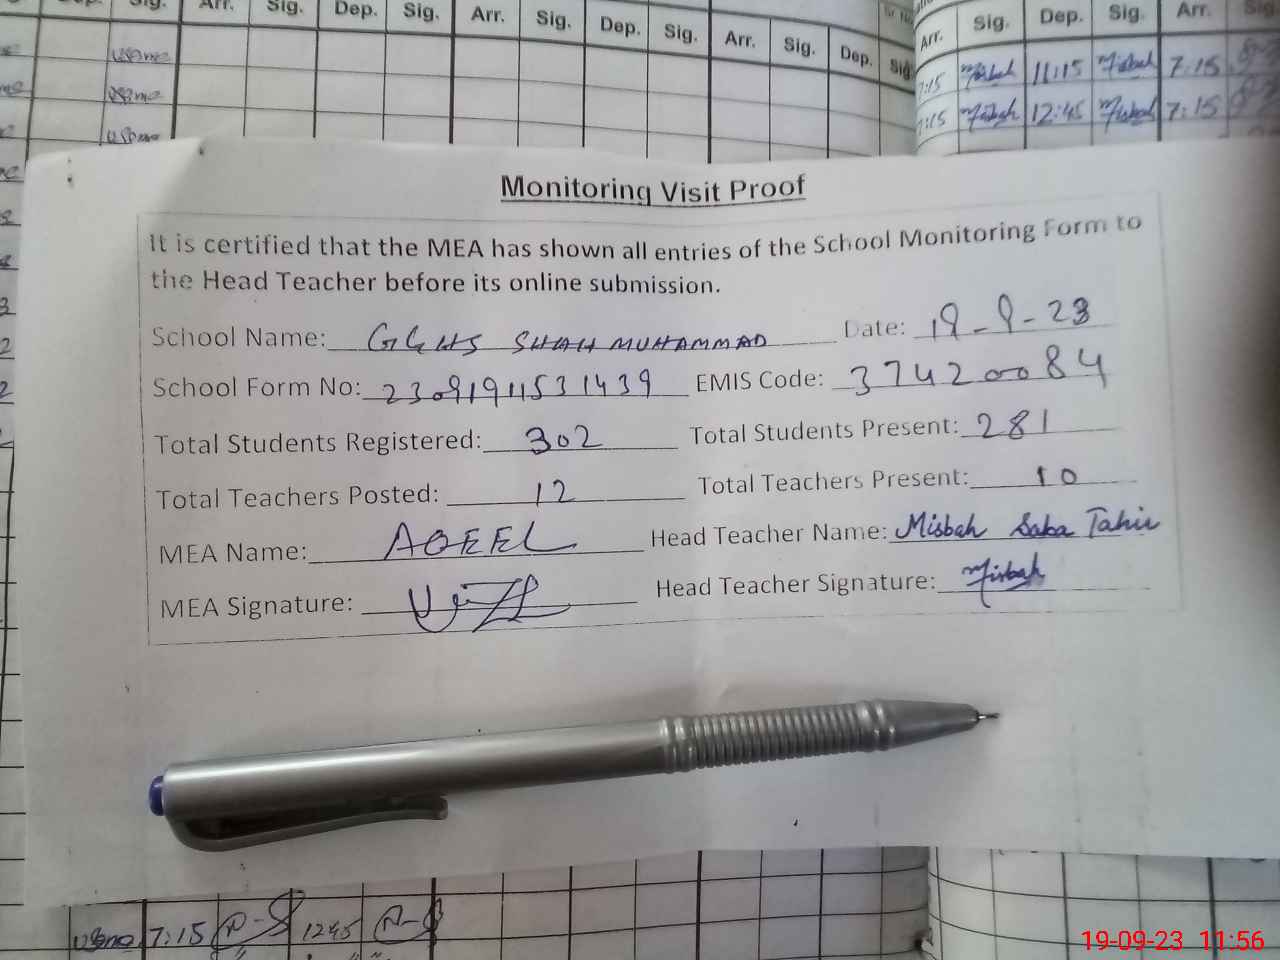 Sig. Arr. Sig. Dep. Sig. Arr. Sig. Dep. Sig. Arr. Sig. Dep. Sig.
Arr. Sig. Dep. Sig. Arr. Sig.
7:15 Misbah 11:15 Misbah 7:15
7:15 Misbah 12:45 Misbah 7:15
Monitoring Visit Proof
It is certified that the MEA has shown all entries of the School Monitoring Form to
the Head Teacher before its online submission.
School Name: GGHS SHAH MUHAMMAD Date: 19-9-23
School Form No: 23091911531439 EMIS Code: 37420084
Total Students Registered: 302 Total Students Present: 281
Total Teachers Posted: 12 Total Teachers Present: 10
MEA Name: AQEEL Head Teacher Name: Misbah Saba Tahir
MEA Signature: Head Teacher Signature: Misbah
7:15 1245
19-09-23 11:56